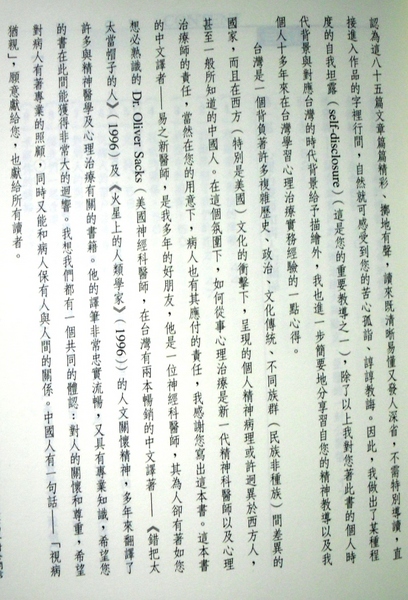 認為這八十五篇文章篇篇精彩、擲地有聲，讀來既清晰易懂又發人深省，不需特別導讀，直
接進入作品的字裡行間，自然就可感受到您的苦心孤詣、諄諄教誨。因此，我做出了某種程
度的自我坦露（self-disclosure）（這是您的重要教導之一），除了以上我對您著此書的個人時
代背景與對應台灣的時代背景給予描繪外，我也進一步簡要地分享習自您的精神教導以及我
個人十多年來在台灣學習心理治療實務經驗的一點心得。
台灣是一個背負著許多複雜歷史、政治、文化傳統、不同族群（民族非種族）間差異的
國家，而且在西方（特別是美國）文化的衝擊下，呈現的個人精神病理或許迥異於西方人，
甚至一般所知道的中國人。在這個氛圍下，如何從事心理治療是新一代精神科醫師以及心理
治療師的責任，當然在您的用意下，病人也有其應付的責任，我感謝您寫出這本書。這本書
的中文譯者——易之新醫師，是我多年的好朋友，他是一位神經科醫師，其為人卻有著如您
想必熟識的 Dr. Oliver Sacks（美國神經科醫師，在台灣有兩本暢銷的中文譯著——《錯把太
太當帽子的人》（1996）及《火星上的人類學家》（1996））的人文關懷精神，多年來翻譯了
許多與精神醫學及心理治療有關的書籍。他的譯筆非常忠實流暢，又具有專業知識，希望您
的書在此間能獲得非常大的迴響。我想我們都有一個共同的體認：對人的關懷和尊重，希望
對病人有著專業的照顧，同時又能和病人保有人與人間的關係。中國人有一句話——「視病
猶親」，願意獻給您，也獻給所有讀者。